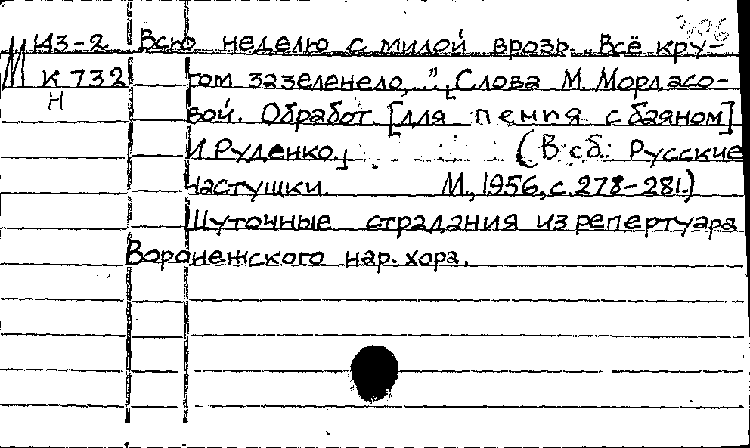 396
М 143-2 Всю неделю с милой врозь. Всё кру-
К 732 гом зазеленело,". [Слова М. Мордасо-
Н
вой. Обработ [для пения с баяном]
И. Руденко.] (В сб.: Русские
частушки. М., 1956, с. 278-281.)
Шуточные страдания из репертуара
Воронежского нар. хора.